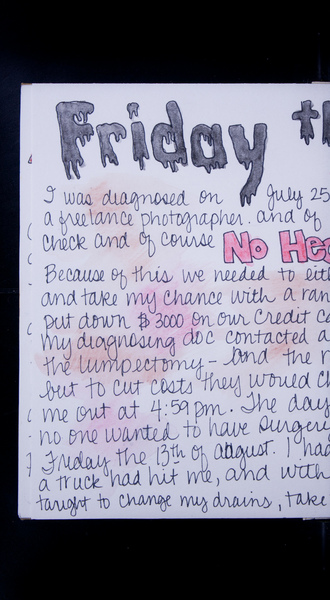 Friday th
I was diagnosed on July 25
a freelance photographer. and of
check and of course No Hea
Because of this we needed to eith
and take my chance with a ran
put down $3000 on our credit ca
my diagnosing doc contacted a
the lumpectomy - and the n
but to cut costs they would ch
me out at 4:59pm. The day
no one wanted to have surgeri
Friday the 13th of august. I had
a truck had hit me, and with
taught to change my drains, take